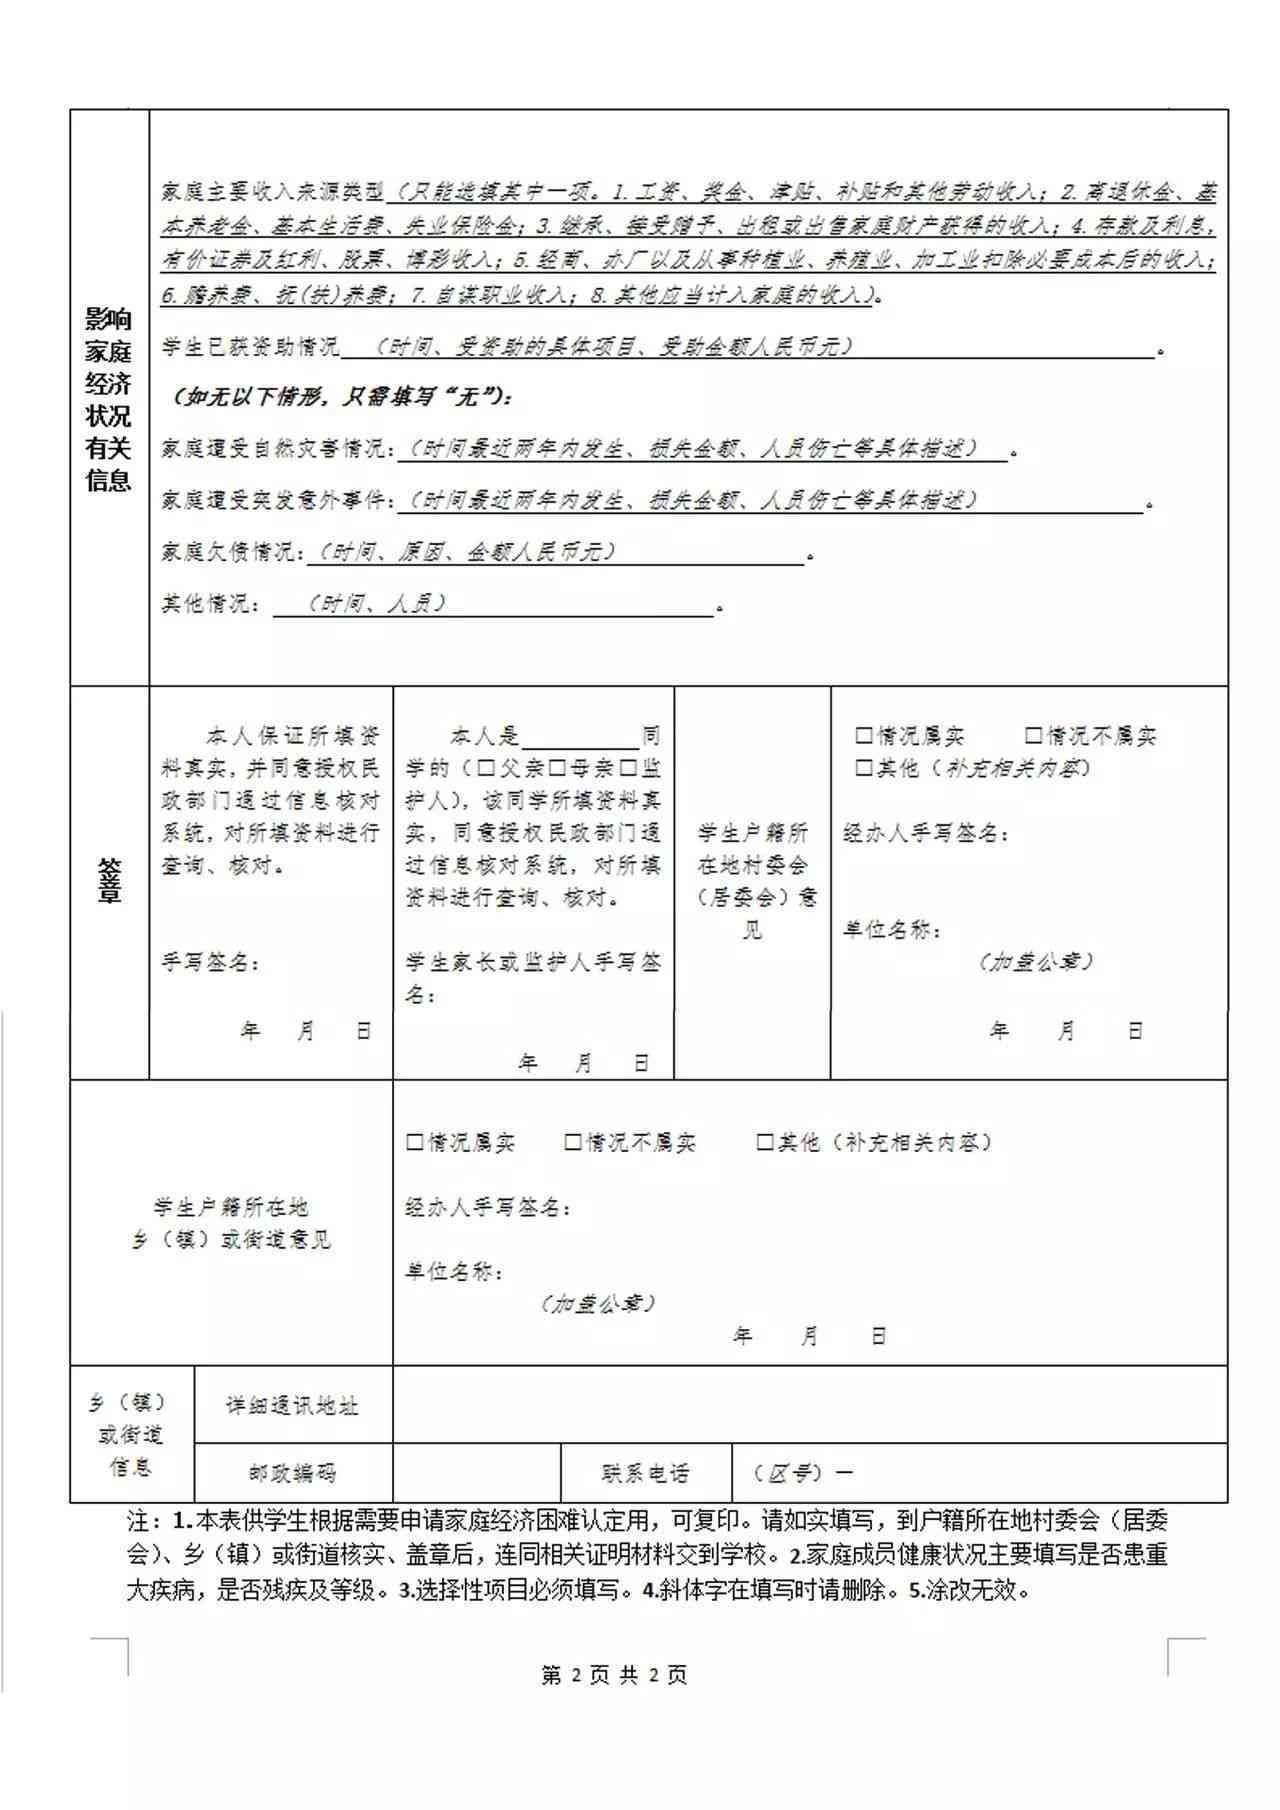 家庭主要收入来源类型（只能选填其中一项。1.工资、奖金、津贴、补贴和其他劳动收入；2.离退休金、基
本养老金、基本生活费、失业保险金；3.继承、接受赠予、出租或出售家庭财产获得的收入；4.存款及利息，
有价证券及红利、股票、博彩收入；5.经商、办厂以及从事种植业、养殖业、加工业扣除必要成本后的收入；
6.赡养费、抚(扶)养费；7.自谋职业收入；8.其他应当计入家庭的收入）。
影响
家庭
经济
状况
有关
信息
学生已获资助情况 （时间、受资助的具体项目、受助金额人民币元） 。
（如无以下情形，只需填写“无”）：
家庭遭受自然灾害情况：（时间最近两年内发生、损失金额、人员伤亡等具体描述） 。
家庭遭受突发意外事件：（时间最近两年内发生、损失金额、人员伤亡等具体描述） 。
家庭欠债情况：（时间、原因、金额人民币元） 。
其他情况： （时间、人员） 。
签章
本人保证所填资
料真实，并同意授权民
政部门通过信息核对
系统，对所填资料进行
查询、核对。
手写签名：
年 月 日
本人是__________同
学的（□父亲□母亲□监
护人），该同学所填资料真
实，同意授权民政部门通
过信息核对系统，对所填
资料进行查询、核对。
学生家长或监护人手写签
名：
年 月 日
学生户籍所
在地村委会
（居委会）意
见
□情况属实 □情况不属实
□其他（补充相关内容）
经办人手写签名：
单位名称：
（加盖公章）
年 月 日
学生户籍所在地
乡（镇）或街道意见
□情况属实 □情况不属实 □其他（补充相关内容）
经办人手写签名：
单位名称：
（加盖公章）
年 月 日
乡（镇）
或街道
信息
详细通讯地址
邮政编码
联系电话
（区号）—
注：1.本表供学生根据需要申请家庭经济困难认定用，可复印。请如实填写，到户籍所在地村委会（居委
会）、乡（镇）或街道核实、盖章后，连同相关证明材料交到学校。2.家庭成员健康状况主要填写是否患重
大疾病，是否残疾及等级。3.选择性项目必须填写。4.斜体字在填写时请删除。5.涂改无效。
第 2 页 共 2 页